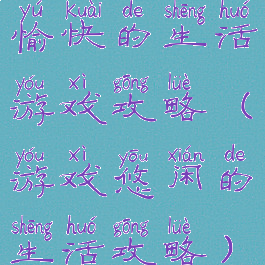 yú kuài de shēng huó
愉快的生活
yóu xì gōng lüè
游戏攻略（
yóu xì yōu xián de
游戏悠闲的
shēng huó gōng lüè
生活攻略）